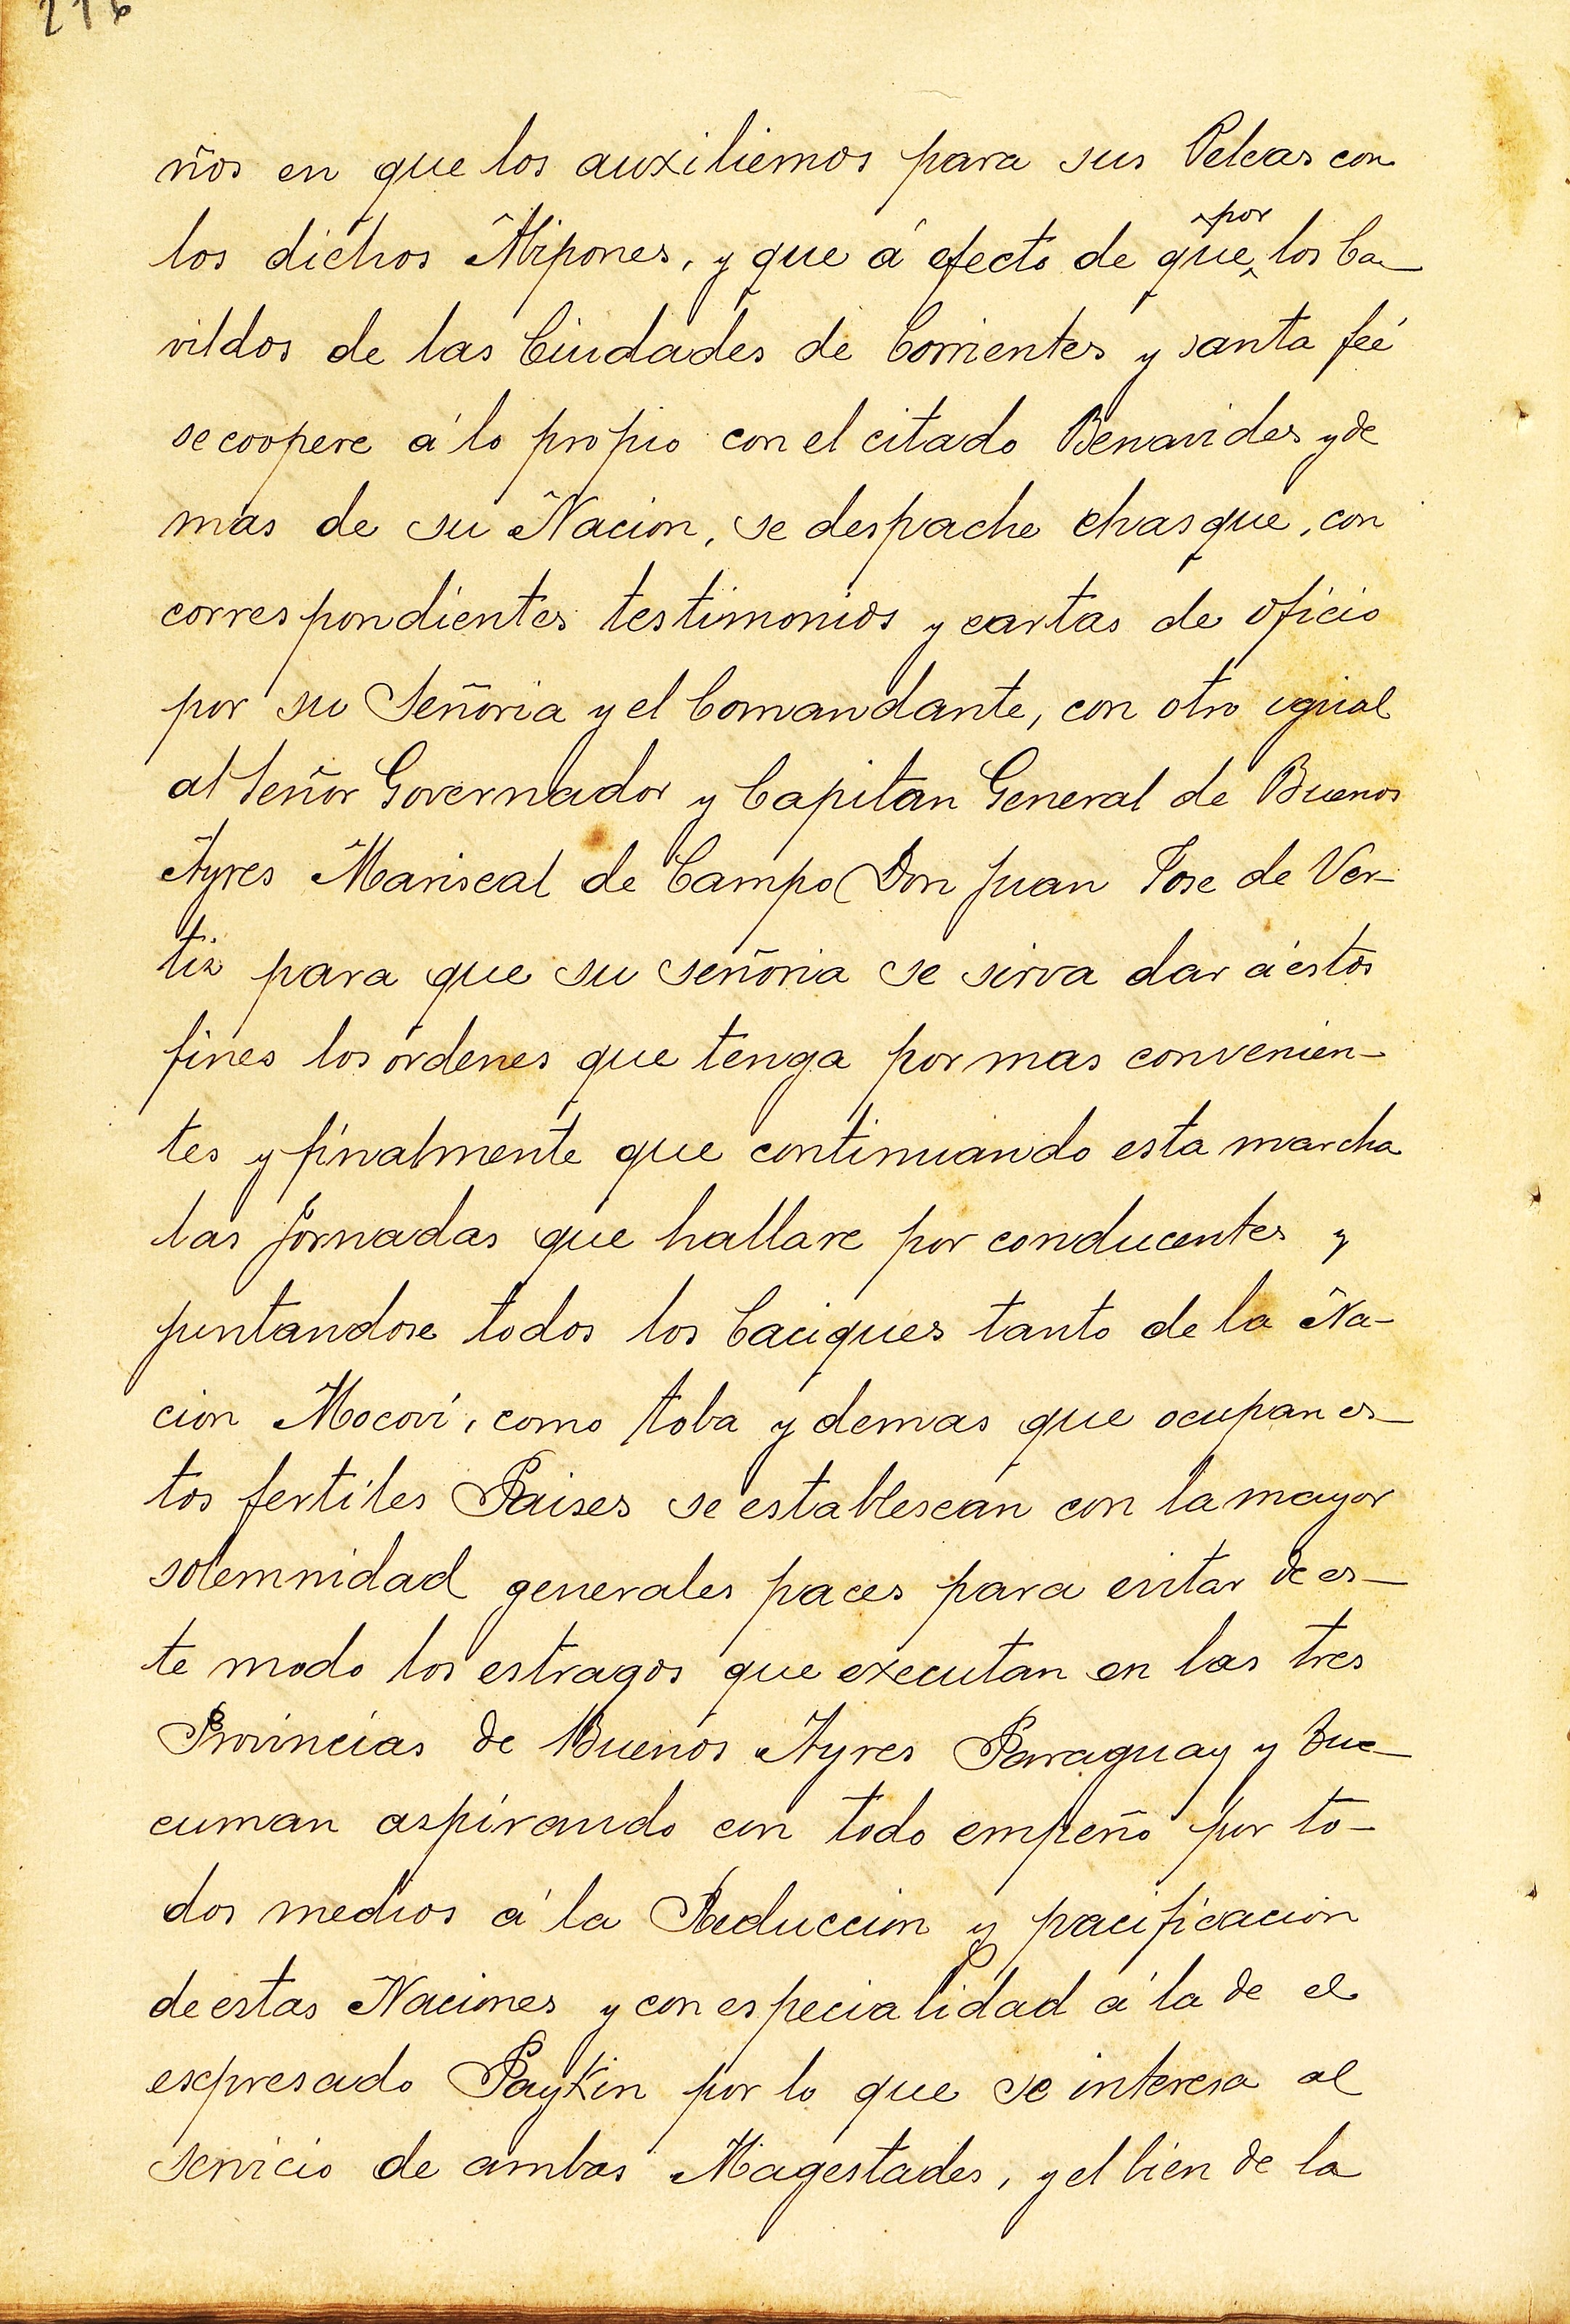 ños en que los auxiliemos para sus Peleas con
los dichos Abipones, y que á efecto de que por los Ca-
vildos de las Ciudades de Corrientes y santa feé
se coopere á lo propio con el citado Benavides y de
mas de su Nacion, se despache chasque, con
correspondientes testimonios y cartas de oficio
por su Señoria y el Comandante, con otro igual
al Señor Governador y Capitan General de Buenos
Ayres Mariscal de Campo Don Juan Jose de Ver-
tiz para que su señoria se sirva dar á éstos
fines los órdenes que tenga por mas convenien-
tes y finalmente que continuando esta marcha
las Jornadas que hallare por conducentes y
juntandose todos los Caciques tanto de la Na-
cion Mocoví, como toba y demas que ocupan es-
tos fertiles Paises se establescan con la mayor
solemnidad generales paces para evitar de es-
te modo los estragos que executan en las tres
Provincias de Buenos Ayres Paraguay y Tuc-
cuman aspirando con todo empeño por to-
dos medios á la Reduccion y pacificacion
de estas Naciones y con especialidad á la de el
espresado Paykin por lo que se interesa al
servicio de ambas Magestades, y el bien de la